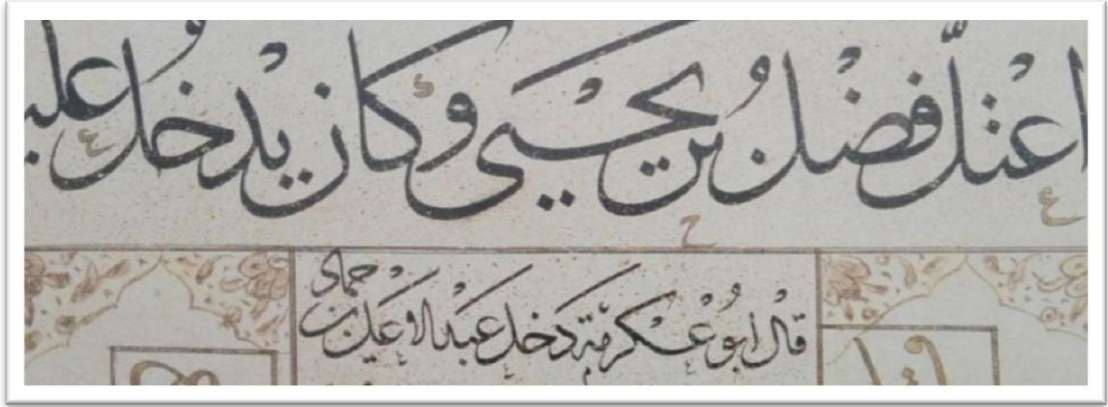 اعتلّ فضْل بنُ يحْيى وَكان يدْخل عليـ
قالْ ابوُعْكرمَة دَخلَ عَبْدالاعَلى بن حمادْ